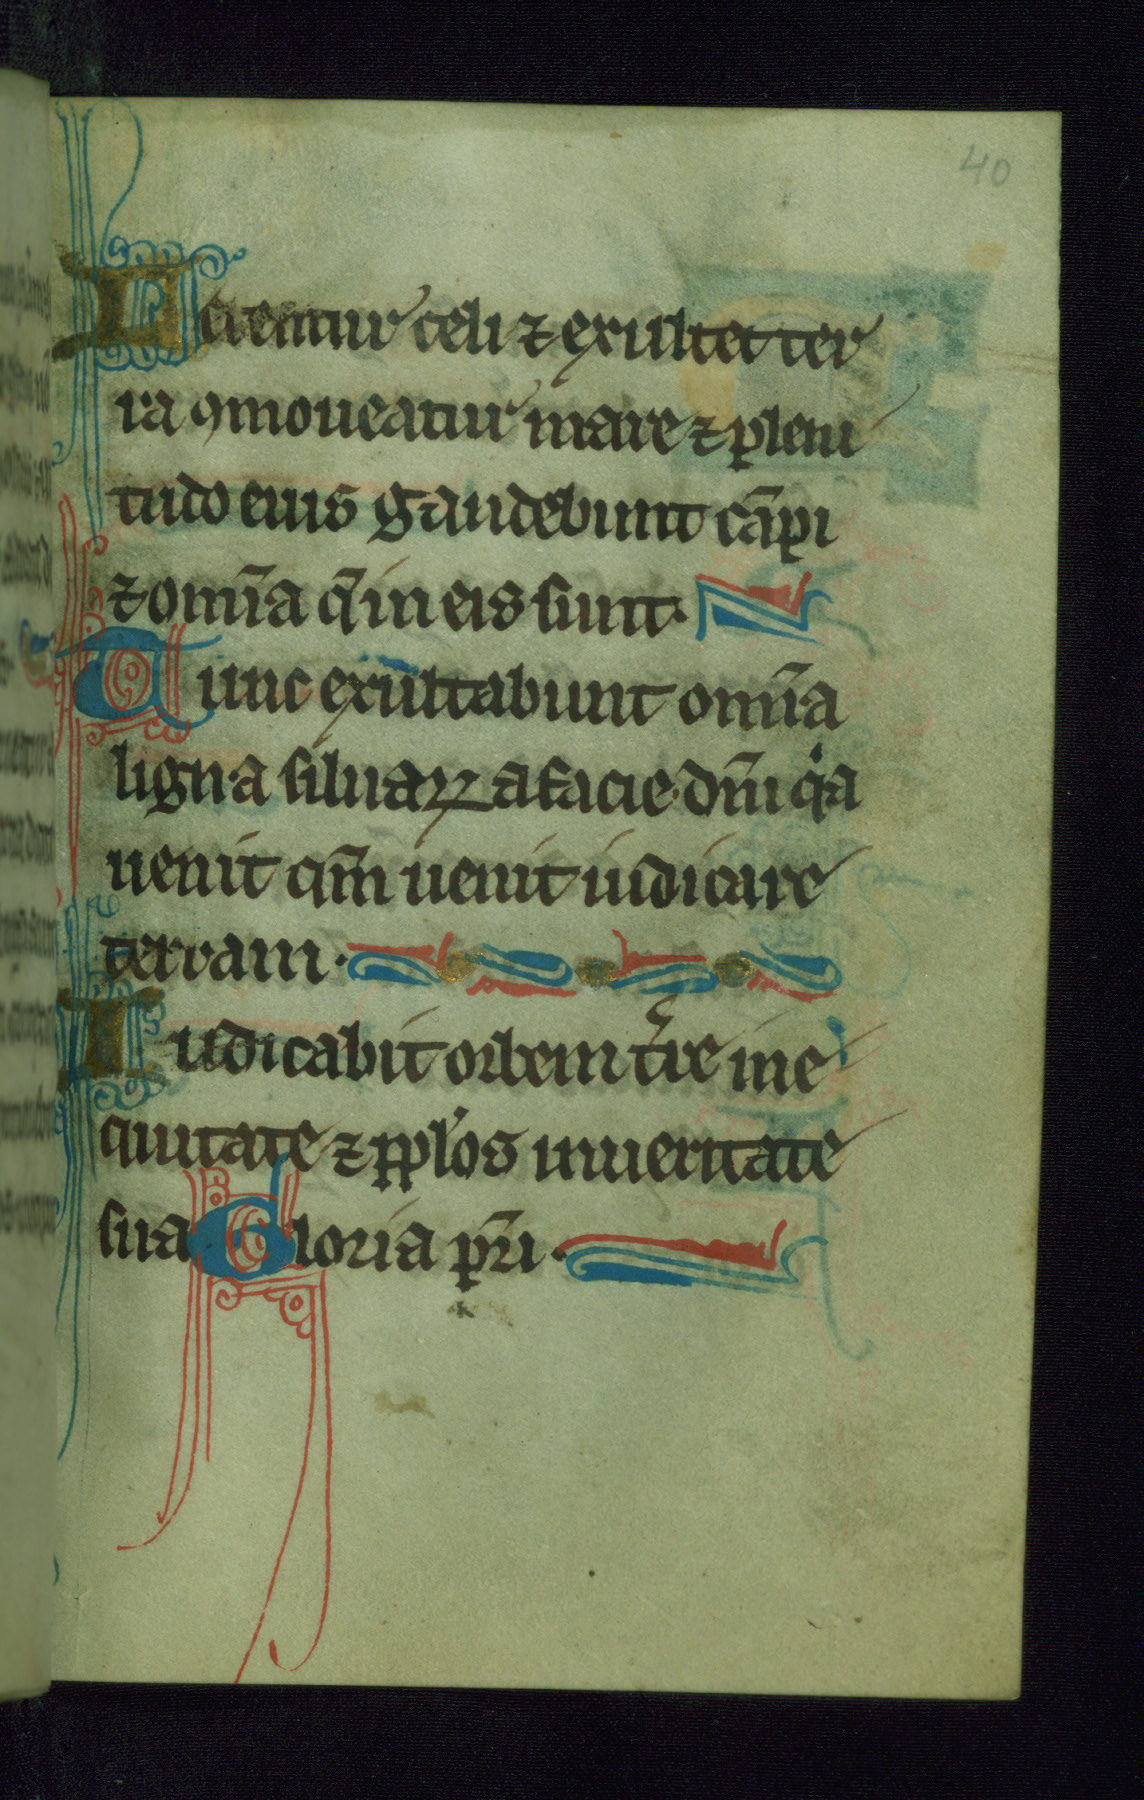 40
Letentur celi ⁊ exultet ter
ra ꝯmoueatur mare ⁊ pleni
tudo eius gaudebunt cāpi
⁊ omīa q̄ in eis sunt.
Tunc exultabunt omīa
ligna siluaꝝ a facie dn̄i qͥa
uenit qm̄ uenit iudicare
terram.
Iudicabit orbem t̄re in e
quitate ⁊ pplōs in ueritate
sua Gloria pr̄i.